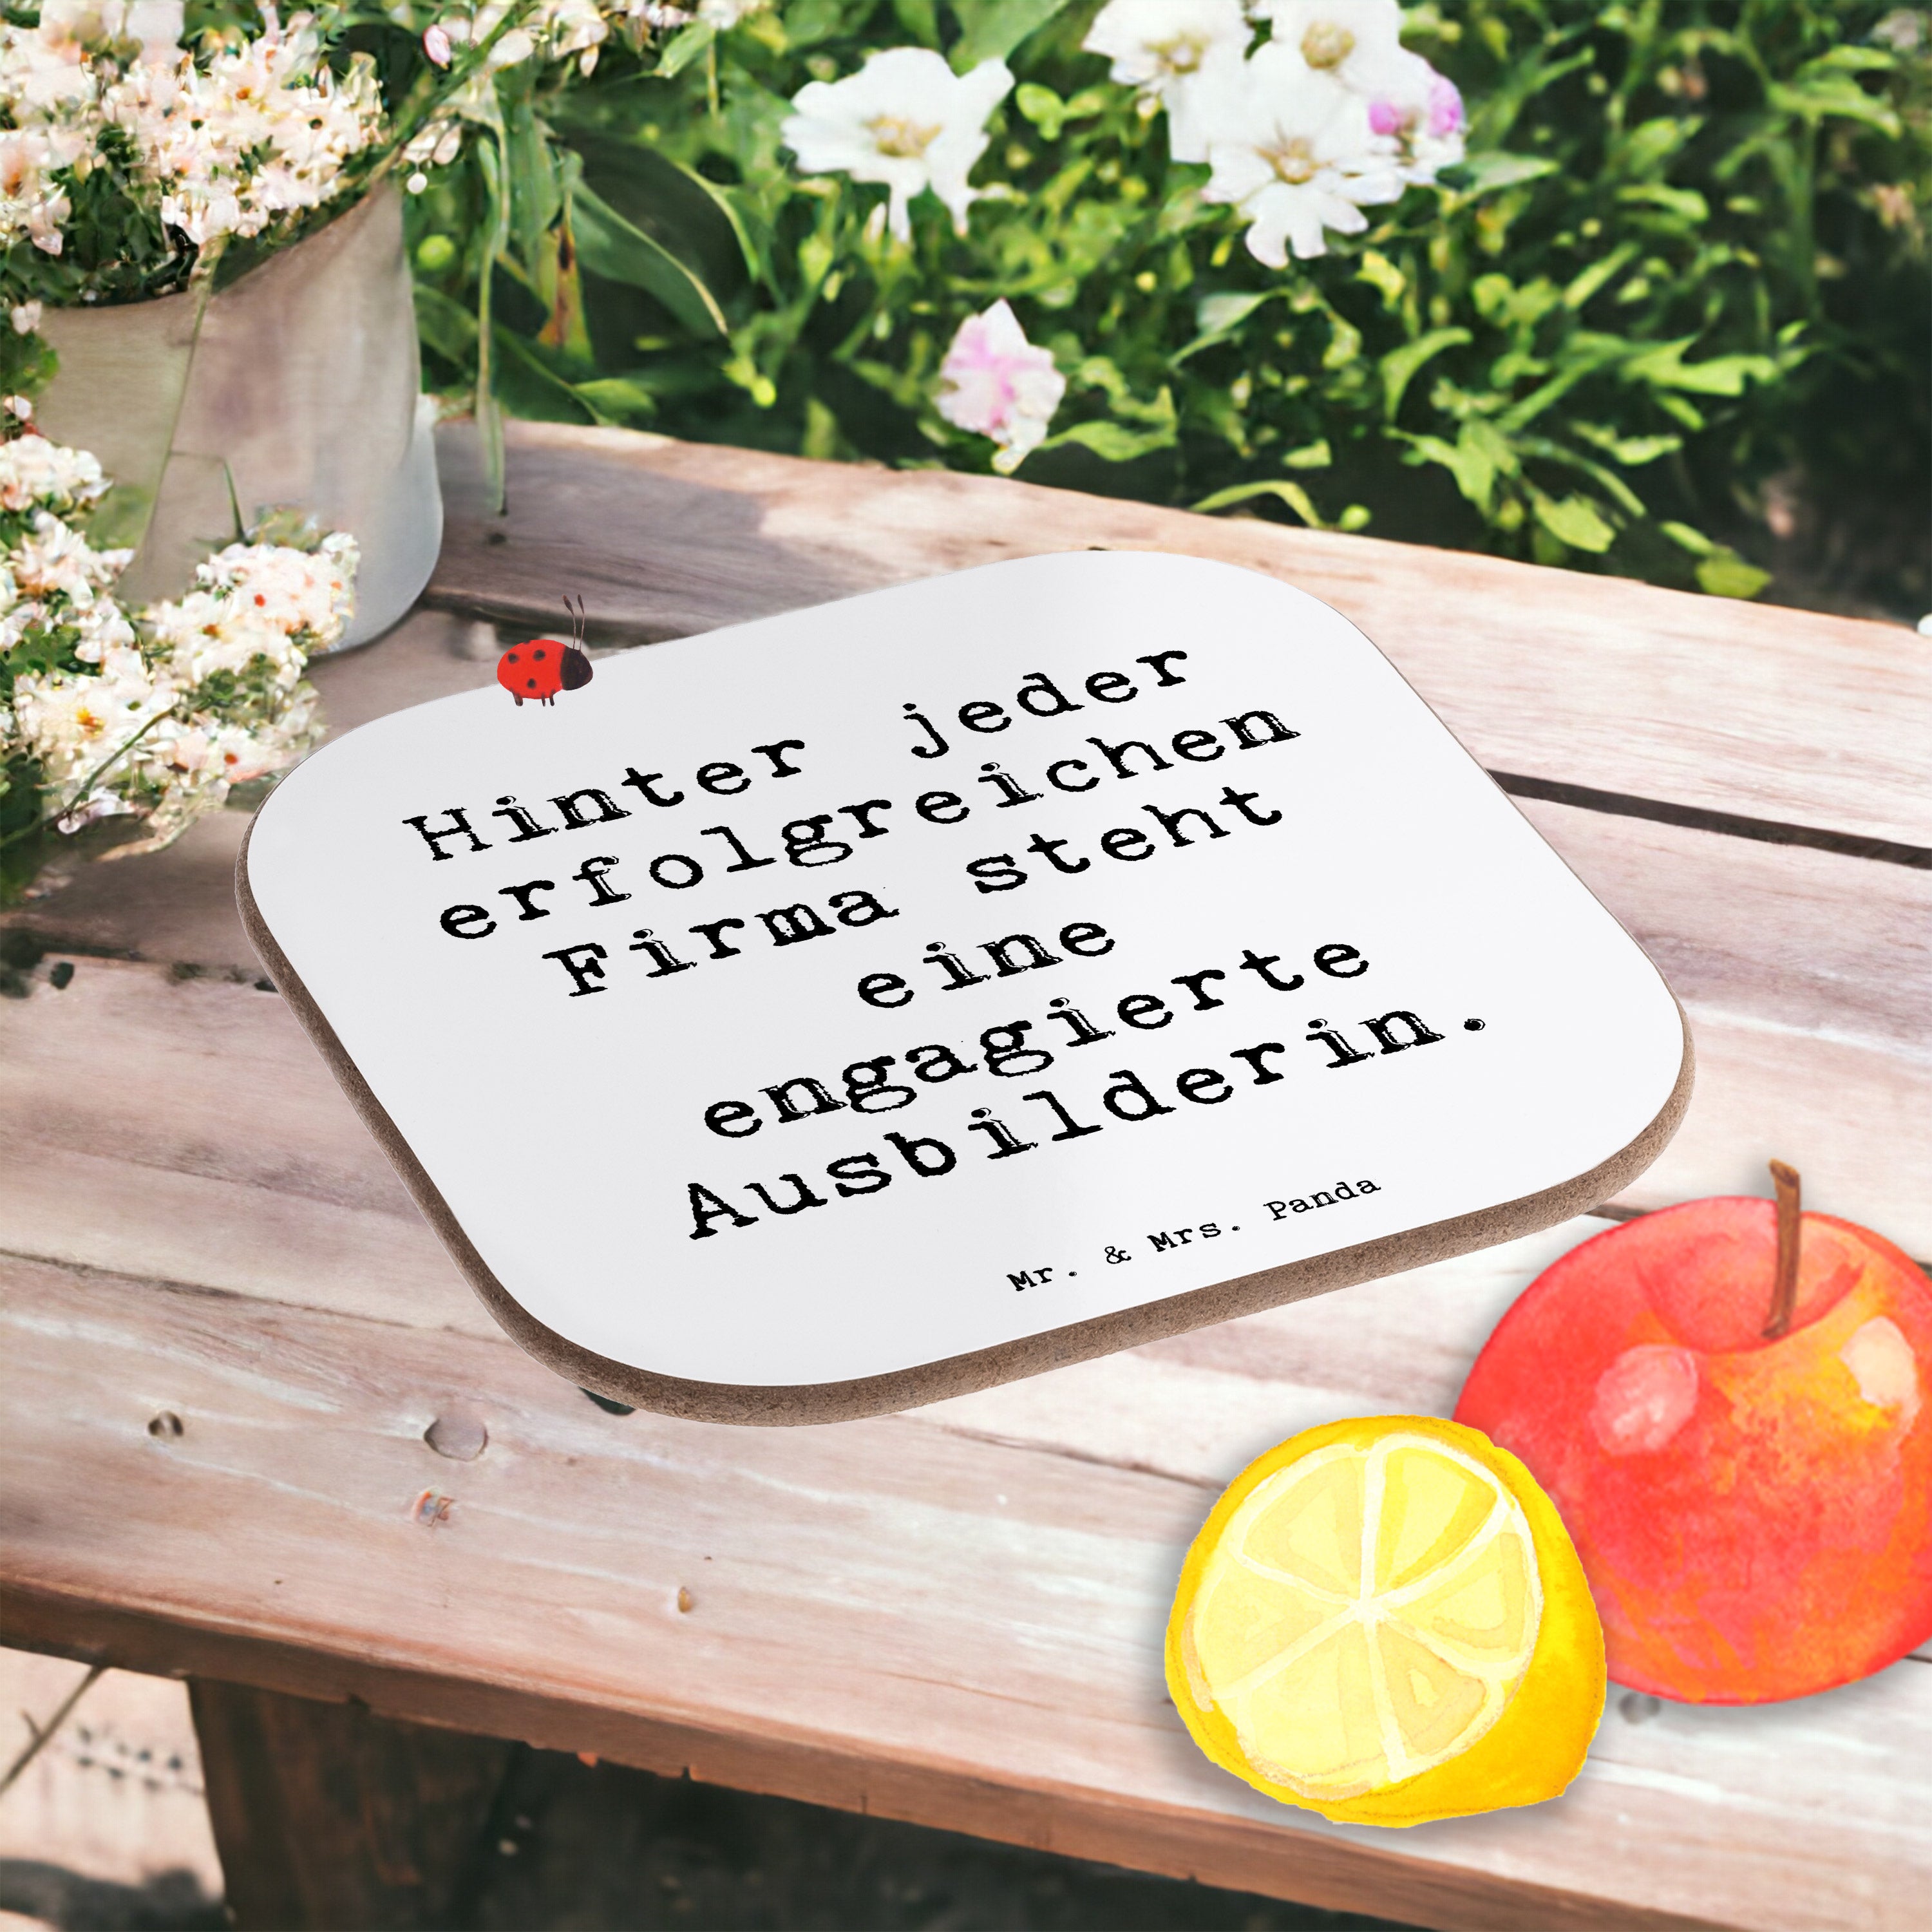 Hinter jeder
erfolgreichen
Firma steht
eine
engagierte
Ausbilderin.
Mr. & Mrs. Panda